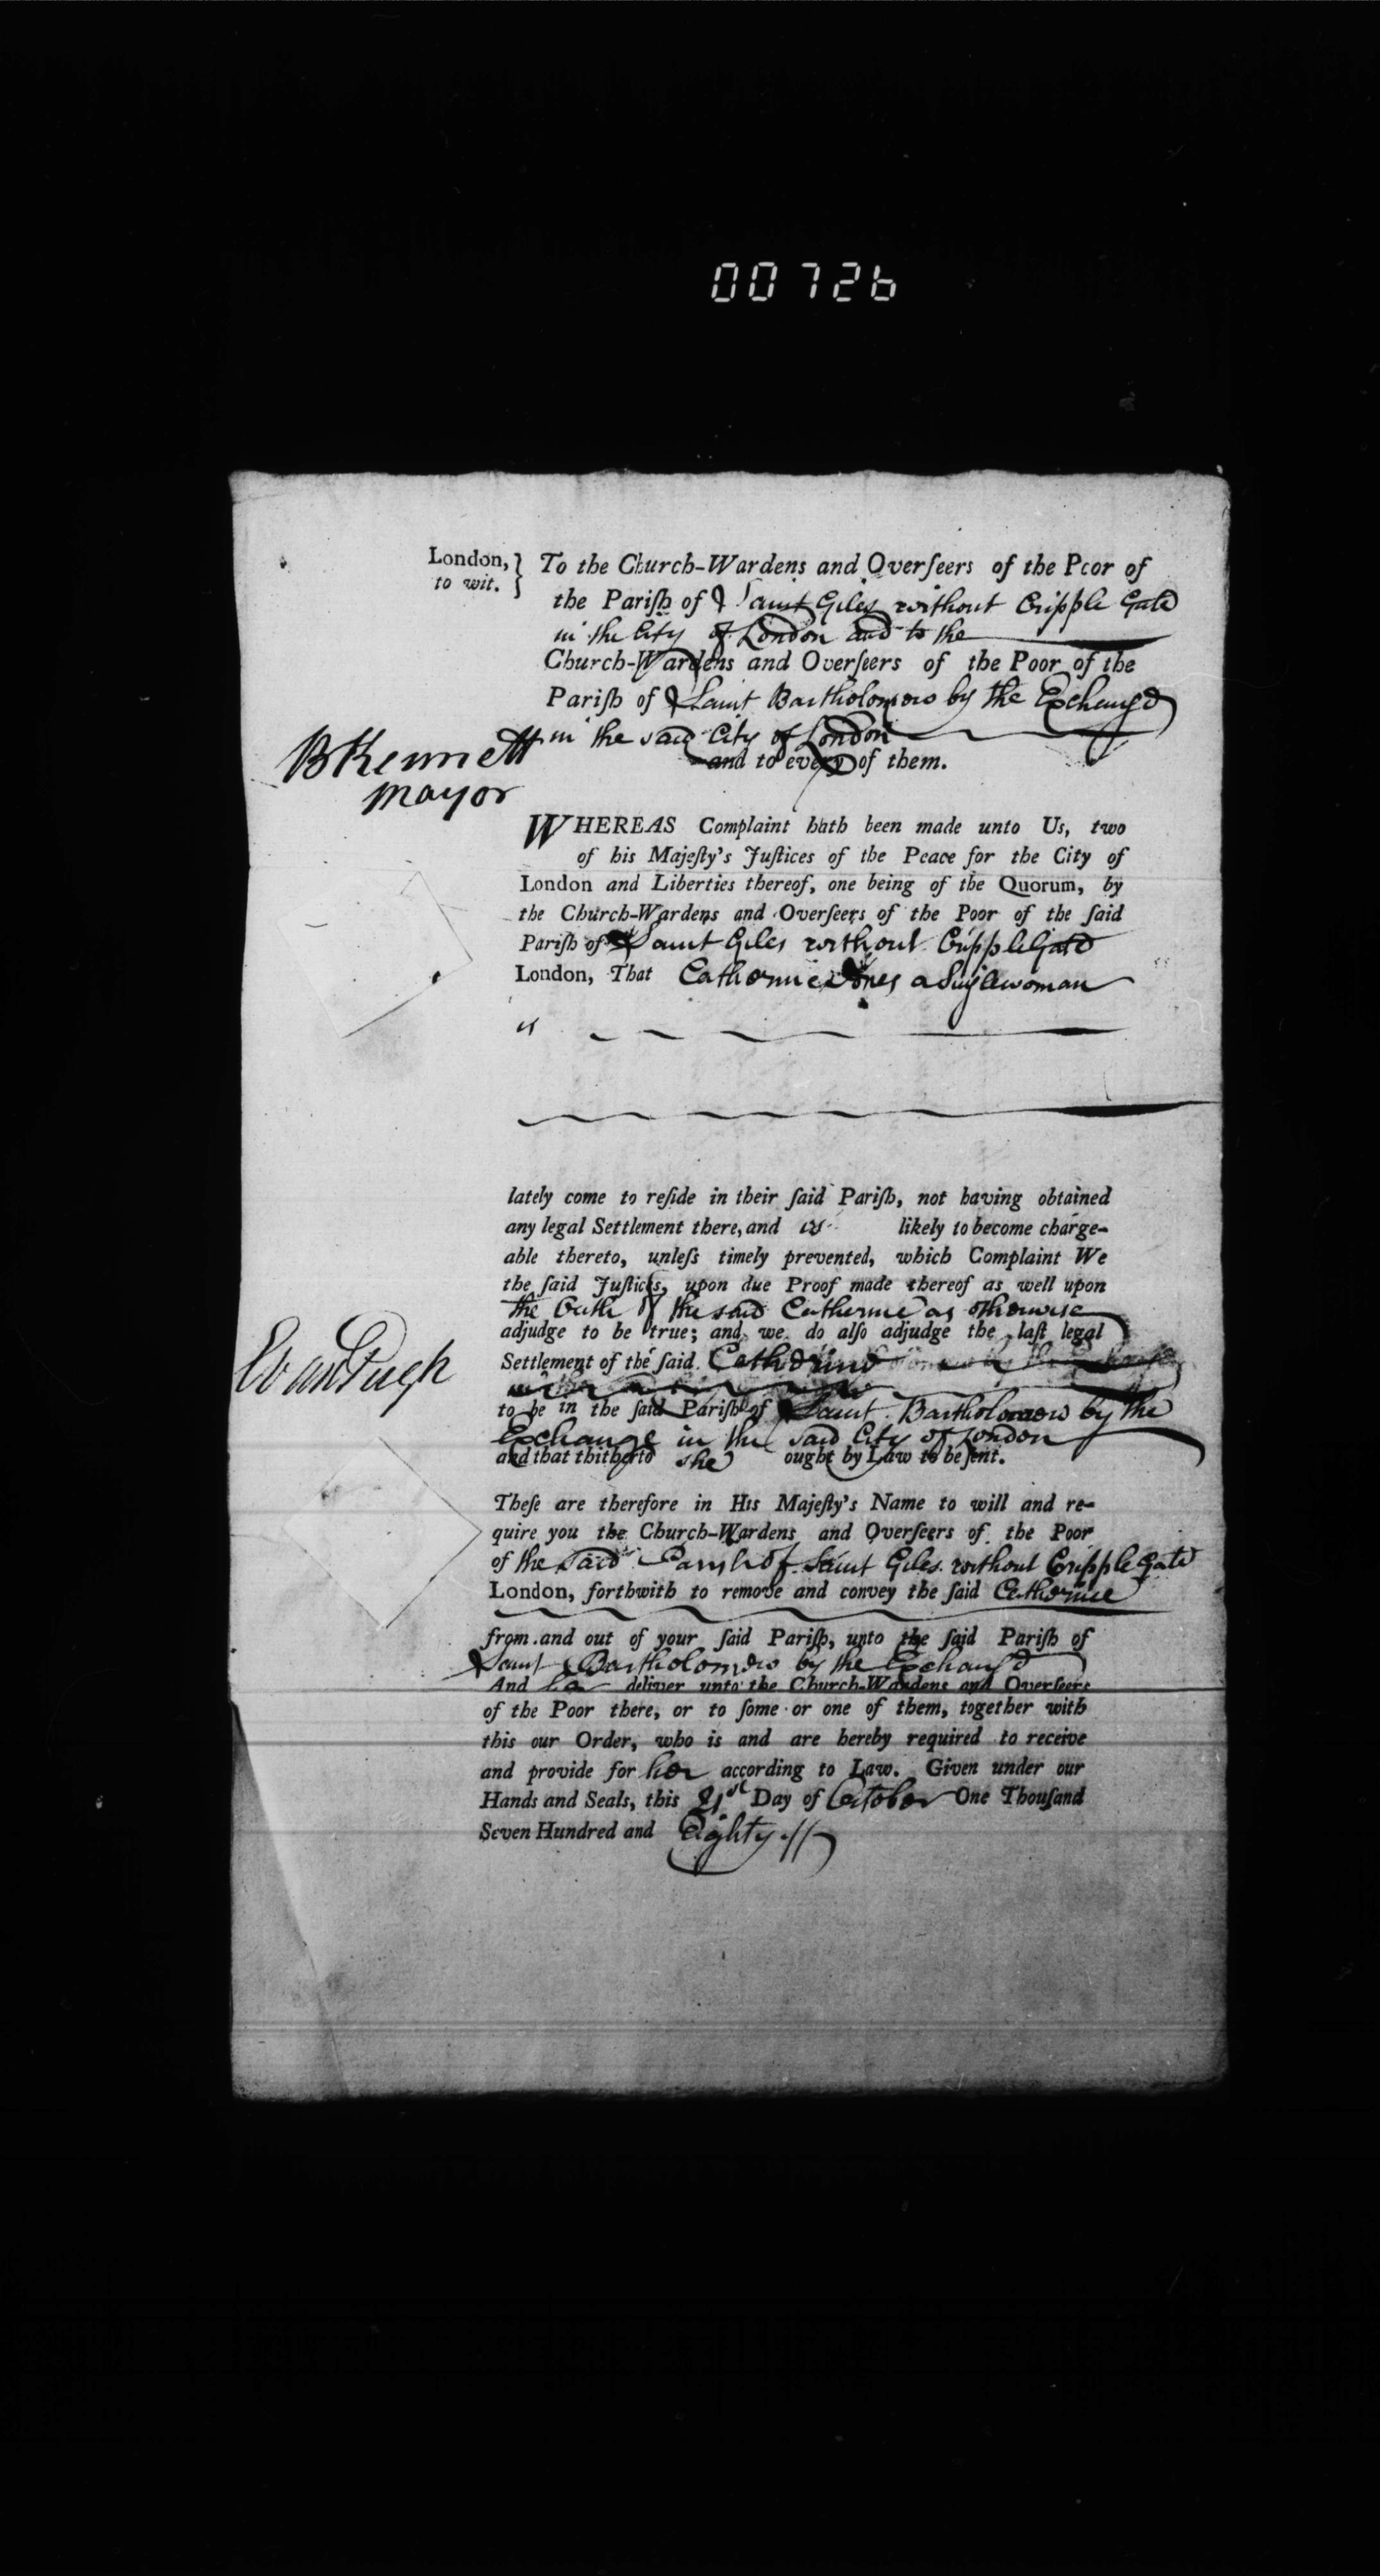 00726
London, } To the Church-Wardens and Overſeers of the Poor of
to wit.
the Pariſh of Saint Giles without Cripple Gate
in the City of London and to the
Church-Wardens and Overſeers of the Poor of the
Pariſh of Saint Bartholomew by the Exchange
in the said City of London
and to every of them.
BKennett
Mayor
WHEREAS Complaint hath been made unto Us, two
of his Majeſty's Juſtices of the Peace for the City of
London and Liberties thereof, one being of the Quorum, by
the Church-Wardens and Overſeers of the Poor of the ſaid
Pariſh of Saint Giles without CrippleGate
London, That Catherine Jones a Singlewoman
is
lately come to reſide in their ſaid Pariſh, not having obtained
any legal Settlement there, and is likely to become charge-
able thereto, unleſs timely prevented, which Complaint We
the ſaid Juſtices, upon due Proof made thereof as well upon
the Oath of the said Catherine as otherwise
adjudge to be true; and we do alſo adjudge the laſt legal
Settlement of the ſaid Catherine
Evan Pugh
to be in the ſaid Pariſh of Saint Bartholomew by the
Exchange in the said City of London
and that thitherto she ought by Law to be ſent.
Theſe are therefore in His Majeſty's Name to will and re-
quire you the Church-Wardens and Overſeers of the Poor
of the said Parish of Saint Giles without Cripple Gate
London, forthwith to remove and convey the ſaid Catherine
from and out of your ſaid Pariſh, unto the ſaid Pariſh of
Saint Bartholomew by the Exchange
And her deliver unto the Church-Wardens and Overſeers
of the Poor there, or to ſome or one of them, together with
this our Order, who is and are hereby required to receive
and provide for her according to Law. Given under our
Hands and Seals, this 21st Day of October One Thouſand
Seven Hundred and Eighty